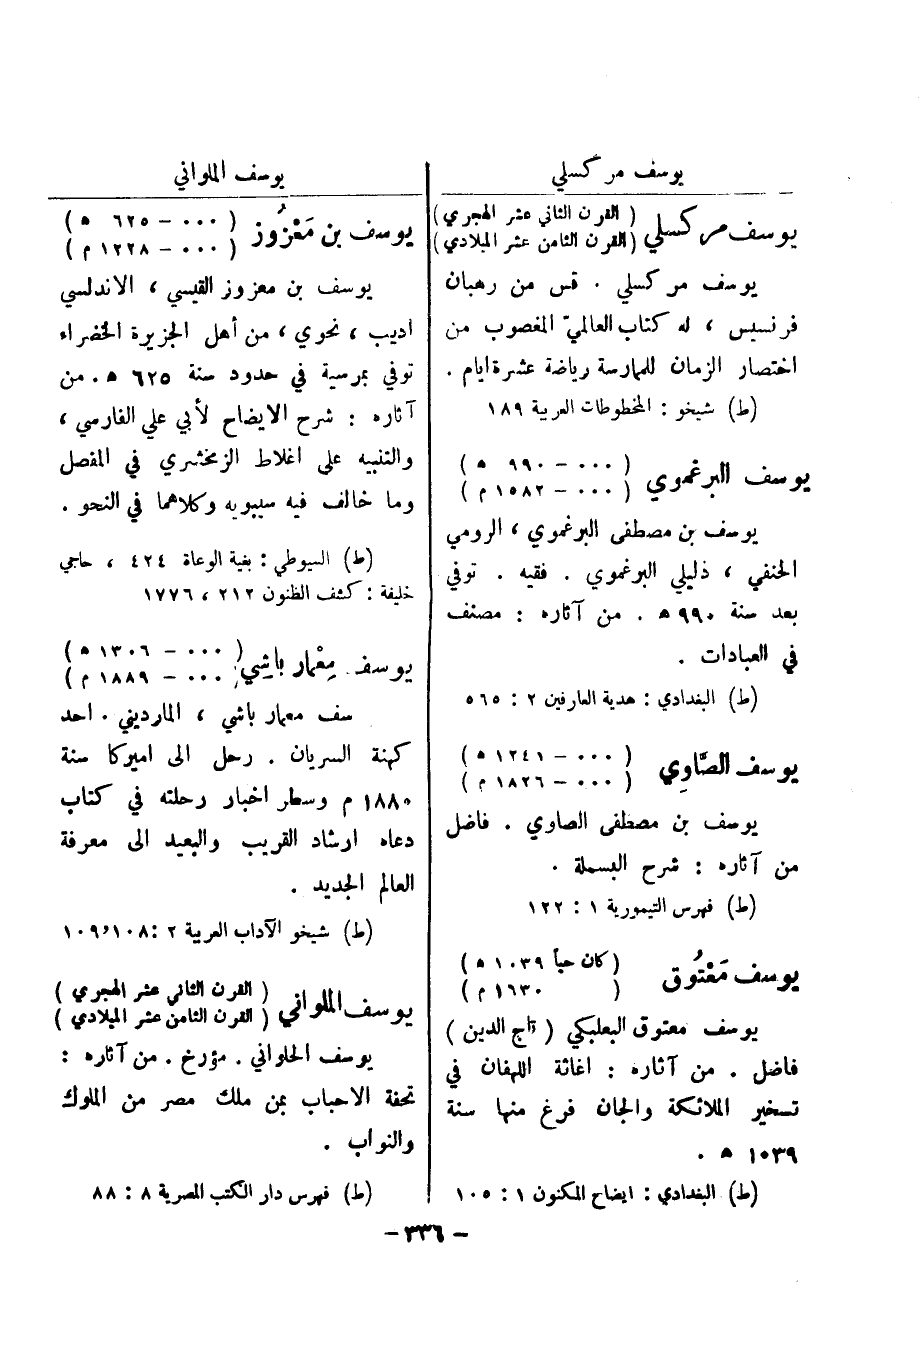 يوسف مركسلي
يوسف مركسلي ( القرن الثاني عشر الهجري )
( القرن الثامن عشر الميلادي )
يوسف مركسلي . قس من رهبان
فرنسيس ، له كتاب العالميّ المغصوب من
اختصار الزمان للمارسة رياضة عشرة ايام .
(ط) شيخو : المخطوطات العربية ١٨٩
يوسف البرغموي ( ٠٠٠ – ٩٩٠ ه )
( ٠٠٠ – ١٥٨٢ م )
يوسف بن مصطفى البرغموي ، الرومي
الحنفي ، ذليلي البرغموي . فقيه . توفي
بعد سنة ٩٩٠ ه . من آثاره : مصنف
في العبادات .
(ط) البغدادي : هدية العارفين ٢ : ٥٦٥
يوسف الصَّاوِي ( ٠٠٠ – ١٢٤١ ه )
( ٠٠٠ – ١٨٢٦ م )
يوسف بن مصطفى الصاوي . فاضل
من آثاره : شرح البسملة .
(ط) فهرس التيمورية ١ : ١٢٢
يوسف مَعْتُوق ( كان حياً ١٠٣٩ ه )
( ١٦٣٠ م )
يوسف معتوق البعلبكي ( تاج الدين )
فاضل . من آثاره : اغاثة اللهفان في
تسخير الملائكة والجان فرغ منها سنة
١٠٣٩ ه .
(ط) البغدادي : ايضاح المكنون ١ : ١٠٥
يوسف الملواني
يوسف بن مَعْزُوز ( ٠٠٠ – ٦٢٥ ه )
( ٠٠٠ – ١٢٢٨ م )
يوسف بن معزوز القيسي ، الاندلسي
اديب ، نحوي ، من أهل الجزيرة الخضراء
توفي بمرسية في حدود سنة ٦٢٥ ه . من
آثاره : شرح الايضاح لأبي علي الفارسي ،
والتنبيه على اغلاط الزمخشري في المفصل
وما خالف فيه سيبويه وكلاهما في النحو .
(ط) السيوطي : بغية الوعاة ٤٢٤ ، حاجي
خليفة : كشف الظنون ٢١٢ ، ١٧٧٦
يوسف مِعْمار باشي ( ٠٠٠ – ١٣٠٦ ه )
٠٠٠ – ١٨٨٩ م )
سف معمار باشي ، المارديني . احد
كهنة السريان . رحل الى اميركا سنة
١٨٨٠ م وسطر اخبار رحلته في كتاب
دعاه ارشاد القريب والبعيد الى معرفة
العالم الجديد .
(ط) شيخو الآداب العربية ٢ : ١٠٨ ، ١٠٩
يوسف الملواني ( القرن الثاني عشر الهجري )
( القرن الثامن عشر الميلادي )
يوسف الحلواني . مؤرخ . من آثاره :
تحفة الاحباب بمن ملك مصر من الملوك
والنواب .
(ط) فهرس دار الكتب المصرية ٨ : ٨٨
– ٣٣٦ –